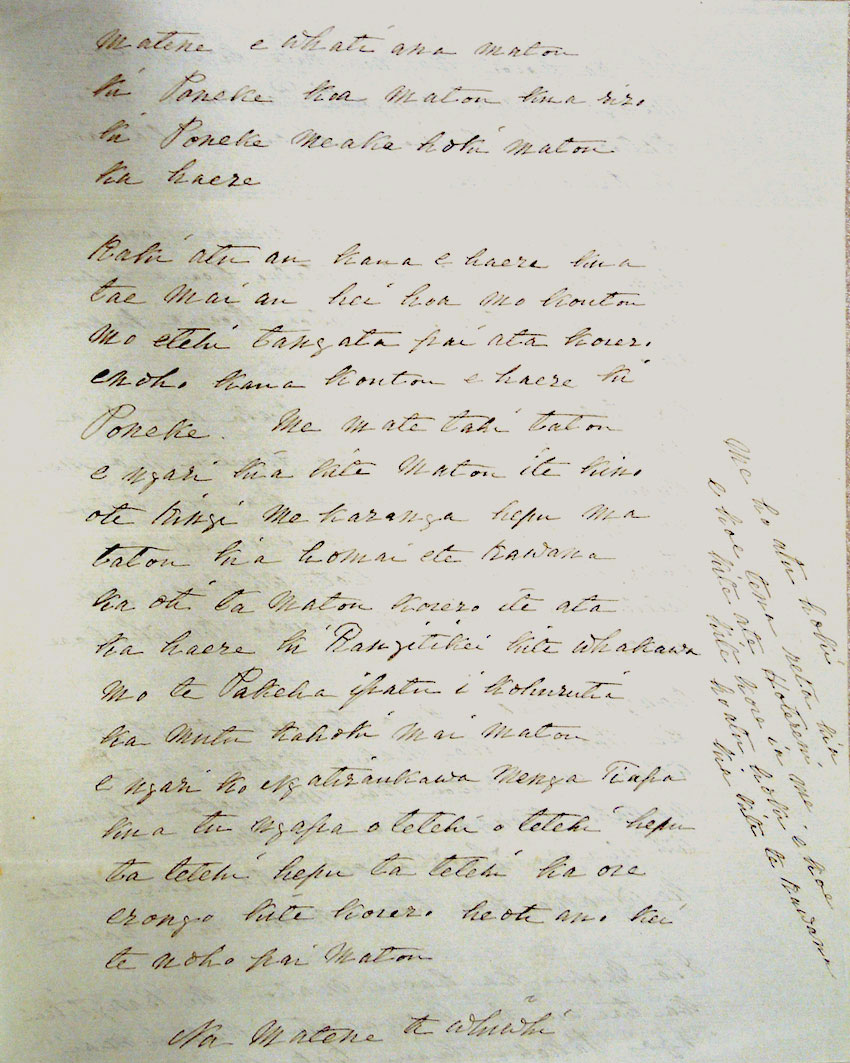 Matene e whati ana maton
ki Poneke koa maton kua riro
ki Poneke meake hoki maton
ka haere
Kahi atu au kaua e haere kua
tae mai au hei hoa mo konton
mo etehi tangata pai ata korero
enoho kaua konton e haere ki
Poneke. Me mate tahi taton
e ngari kia kite Maton ite kino
ote Kingi me karanga hepu ma
taton kia homai ete Kawana
ka oti ta Maton korero ite ata
ka haere ki Rangitikei kite whakawa
mo te Pakeha ipatu i kohurutia
ka mutu kahoki mai maton
e ngari ko Ngatiraukawa nenga Tiupa
kua tu ngapa o tetehi o tetehi hepu
ta tetehi hepu ta tetehi ka ore
erongo kite korero heoti ano kei
te noho pai Maton
Na Matene te Whiwhi
Me ho atu hoki
e koe tona reta kia
kite ate Hotereni me e koe
kite koe ia
hoatu hoki
kia kite te Kawana